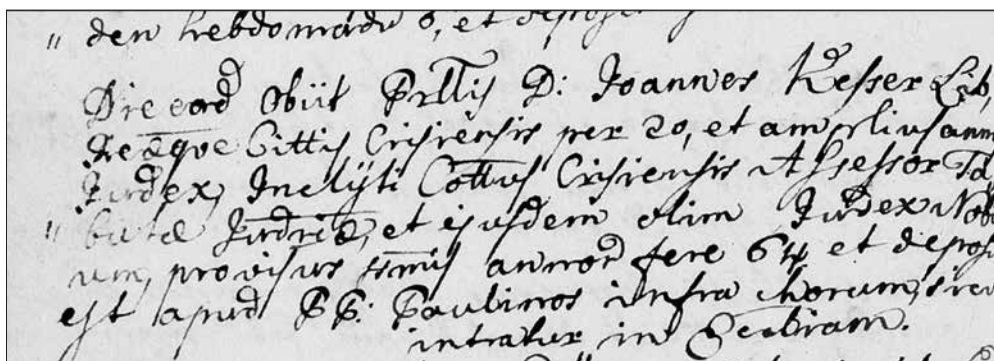 " den hebdomada 6, et deposi
Die eod Obiit Prllis D: Joannes Kesser Lib,
Reæque Cittis Crisiensis per 20, et amplius ann
Judex, Inclyti Cottus Crisiensis Assessor Ta
" bulæ Judriæ, et ejusdem olim Judex Nobi
um, provisus ssmis annor fere 64 et deposi
est apud PP: Paulinos infra Chorum,
intratur in